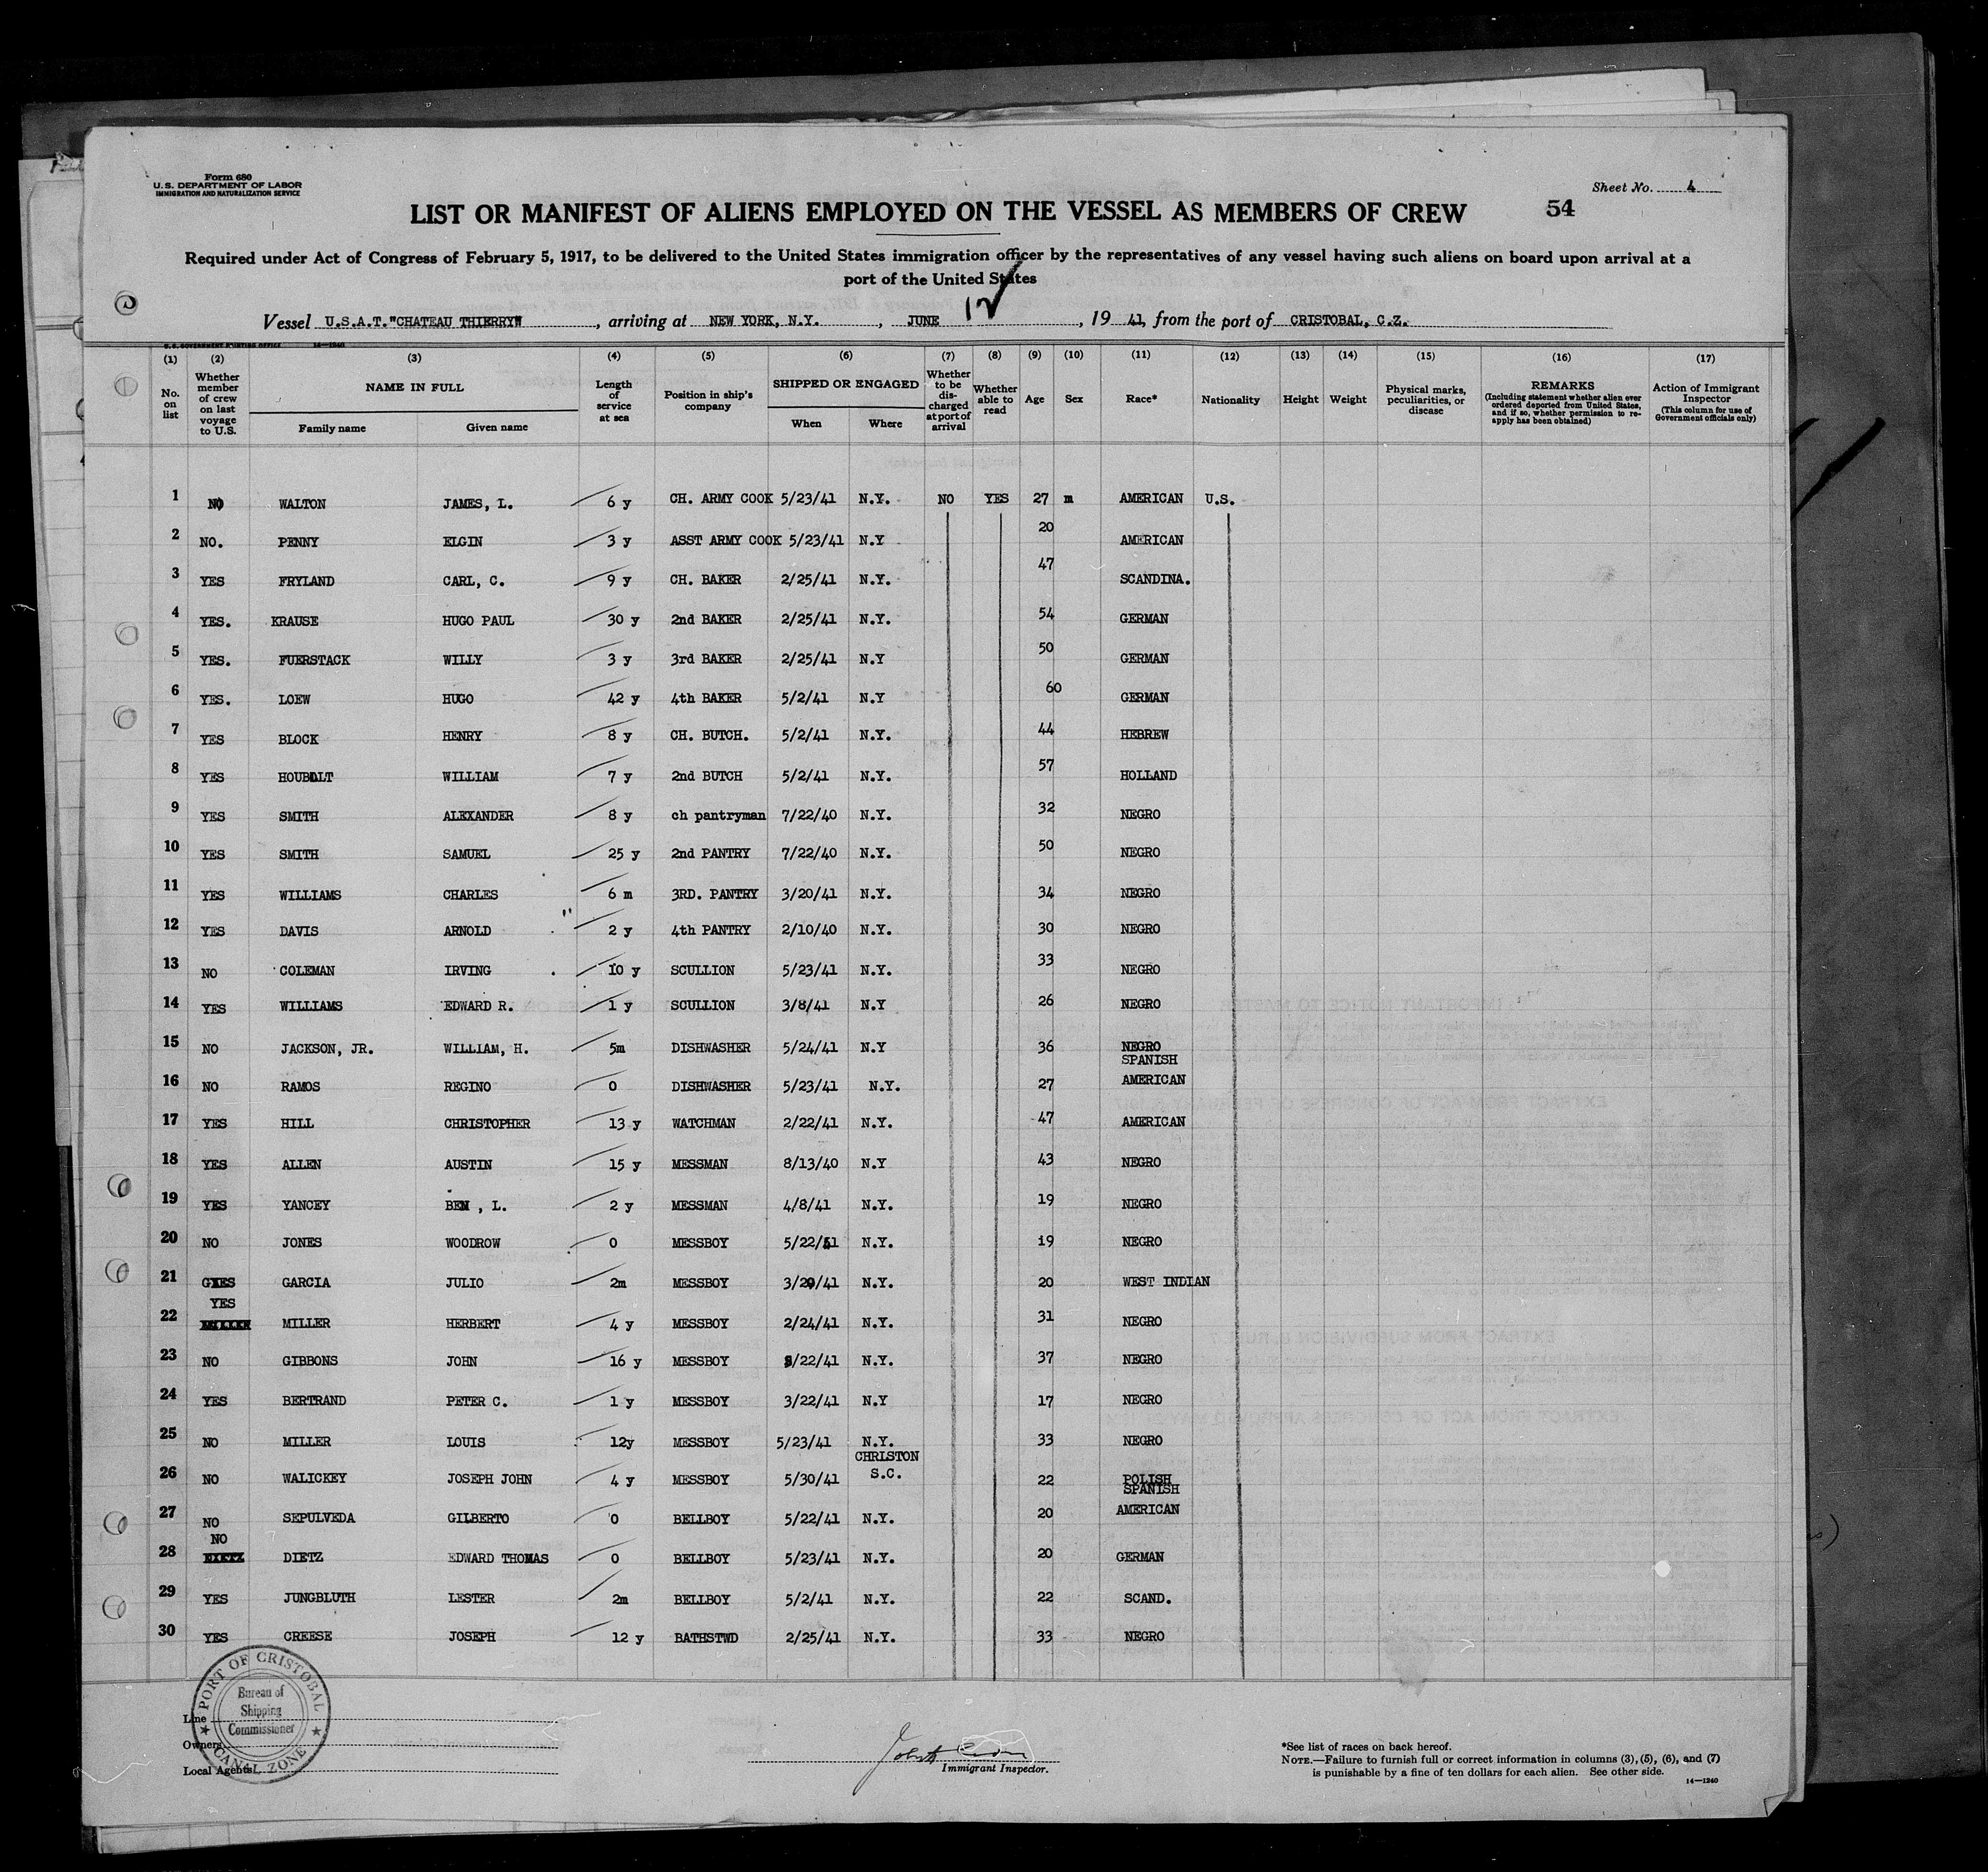 Form 680
U.S. DEPARTMENT OF LABOR
IMMIGRATION AND NATURALIZATION SERVICE
Sheet No. 4
LIST OR MANIFEST OF ALIENS EMPLOYED ON THE VESSEL AS MEMBERS OF CREW 54
Required under Act of Congress of February 5, 1917, to be delivered to the United States immigration officer by the representatives of any vessel having such aliens on board upon arrival at a
port of the United States
Vessel U.S.A.T."CHATEAU THIERRY", arriving at NEW YORK, N.Y., JUNE 12, 19 41, from the port of CRISTOBAL, C.Z.
U.S. GOVERNMENT PRINTING OFFICE 14—1240
(1) (2) (3) (4) (5) (6) (7) (8) (9) (10) (11) (12) (13) (14) (15) (16) (17)
No. on list
Whether member of crew on last voyage to U.S.
NAME IN FULL
Family name Given name
Length of service at sea
Position in ship's company
SHIPPED OR ENGAGED
When Where
Whether to be discharged at port of arrival
Whether able to read
Age
Sex
Race*
Nationality
Height
Weight
Physical marks, peculiarities, or disease
REMARKS
(Including statement whether alien ever ordered deported from United States, and if so, whether permission to reapply has been obtained)
Action of Immigrant Inspector
(This column for use of Government officials only)
1 NO WALTON JAMES, L. 6 y CH. ARMY COOK 5/23/41 N.Y. NO YES 27 m AMERICAN U.S.
2 NO. PENNY ELGIN 3 y ASST ARMY COOK 5/23/41 N.Y 20 AMERICAN
3 YES FRYLAND CARL, C. 9 y CH. BAKER 2/25/41 N.Y. 47 SCANDINA.
4 YES. KRAUSE HUGO PAUL 30 y 2nd BAKER 2/25/41 N.Y. 54 GERMAN
5 YES. FUERSTACK WILLY 3 y 3rd BAKER 2/25/41 N.Y 50 GERMAN
6 YES. LOEW HUGO 42 y 4th BAKER 5/2/41 N.Y 60 GERMAN
7 YES BLOCK HENRY 8 y CH. BUTCH. 5/2/41 N.Y. 44 HEBREW
8 YES HOUBOLT WILLIAM 7 y 2nd BUTCH 5/2/41 N.Y. 57 HOLLAND
9 YES SMITH ALEXANDER 8 y ch pantryman 7/22/40 N.Y. 32 NEGRO
10 YES SMITH SAMUEL 25 y 2nd PANTRY 7/22/40 N.Y. 50 NEGRO
11 YES WILLIAMS CHARLES 6 m 3RD. PANTRY 3/20/41 N.Y. 34 NEGRO
12 YES DAVIS ARNOLD 2 y 4th PANTRY 2/10/40 N.Y. 30 NEGRO
13 NO COLEMAN IRVING 10 y SCULLION 5/23/41 N.Y. 33 NEGRO
14 YES WILLIAMS EDWARD R. 1 y SCULLION 3/8/41 N.Y 26 NEGRO
15 NO JACKSON, JR. WILLIAM, H. 5m DISHWASHER 5/24/41 N.Y 36 NEGRO
16 NO RAMOS REGINO 0 DISHWASHER 5/23/41 N.Y. 27 SPANISH AMERICAN
17 YES HILL CHRISTOPHER 13 y WATCHMAN 2/22/41 N.Y. 47 AMERICAN
18 YES ALLEN AUSTIN 15 y MESSMAN 8/13/40 N.Y 43 NEGRO
19 YES YANCEY BEN , L. 2 y MESSMAN 4/8/41 N.Y. 19 NEGRO
20 NO JONES WOODROW 0 MESSBOY 5/22/41 N.Y. 19 NEGRO
21 GYES GARCIA JULIO 2m MESSBOY 3/29/41 N.Y. 20 WEST INDIAN
22 YES MILLER HERBERT 4 y MESSBOY 2/24/41 N.Y. 31 NEGRO
23 NO GIBBONS JOHN 16 y MESSBOY 5/22/41 N.Y. 37 NEGRO
24 YES BERTRAND PETER C. 1 y MESSBOY 3/22/41 N.Y 17 NEGRO
25 NO MILLER LOUIS 12y MESSBOY 5/23/41 N.Y. 33 NEGRO
26 NO WALICKEY JOSEPH JOHN 4 y MESSBOY 5/30/41 CHRLSTON S.C. 22 POLISH
27 NO SEPULVEDA GILBERTO 0 BELLBOY 5/22/41 N.Y. 20 SPANISH AMERICAN
28 NO DIETZ EDWARD THOMAS 0 BELLBOY 5/23/41 N.Y. 20 GERMAN
29 YES JUNGBLUTH LESTER 2m BELLBOY 5/2/41 N.Y. 22 SCAND.
30 YES CREESE JOSEPH 12 y BATHSTWD 2/25/41 N.Y. 33 NEGRO
PORT OF CRISTOBAL
Bureau of Shipping Commissioner
CANAL ZONE
Line
Owners
Local Agents
Immigrant Inspector.
*See list of races on back hereof.
NOTE.—Failure to furnish full or correct information in columns (3), (5), (6), and (7)
is punishable by a fine of ten dollars for each alien. See other side.
14—1240